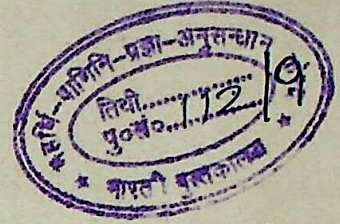 महर्षि-पाणिनि-प्रज्ञा-अनुसन्धान
तिथी..............
पु०सं०....1129
* भारती पुस्तकालय *